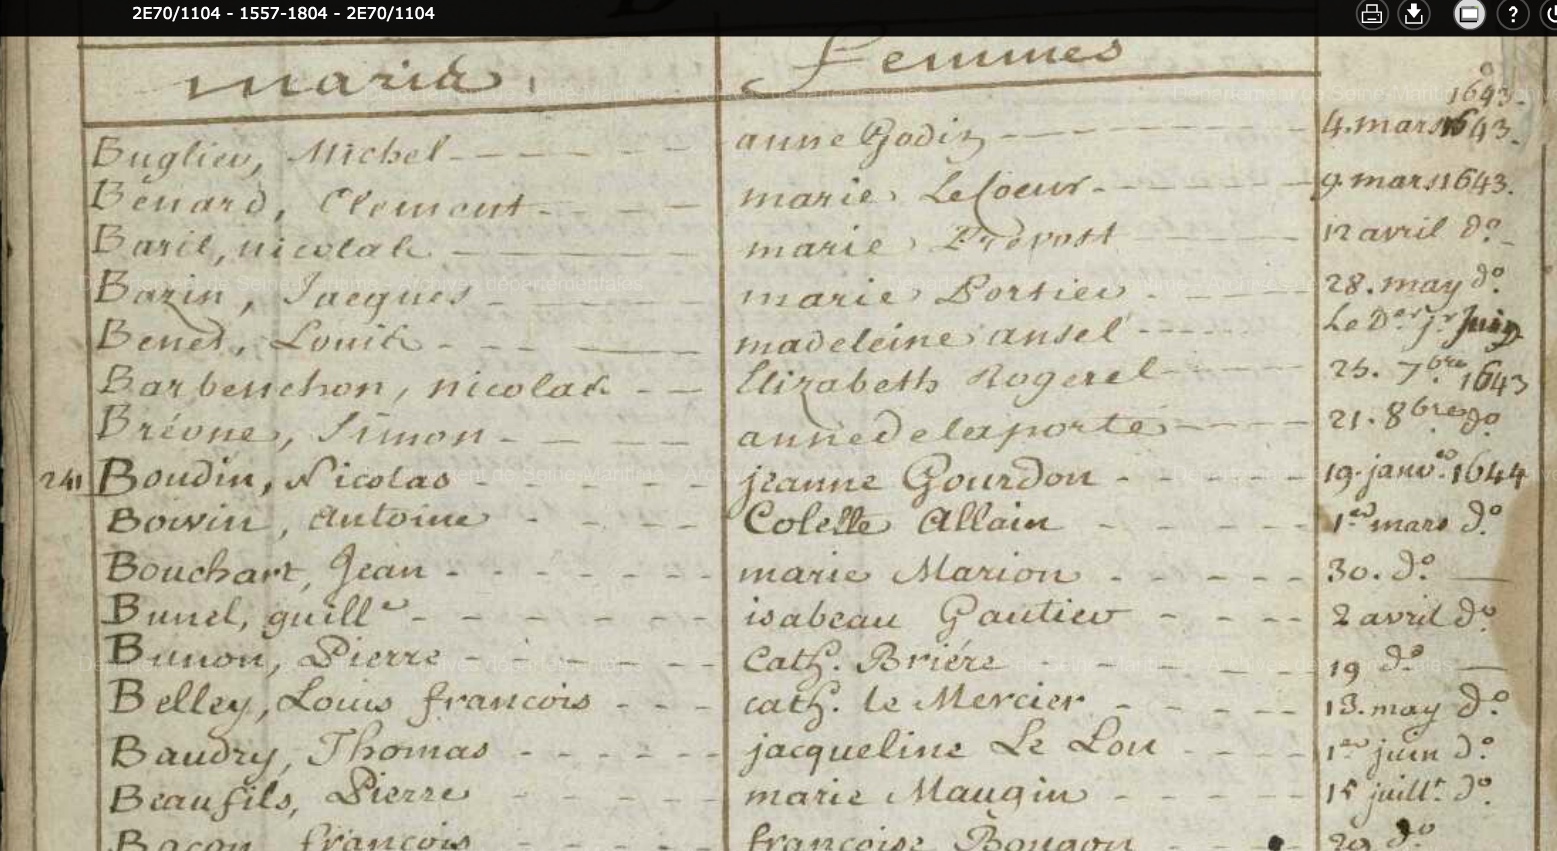 2E70/1104 - 1557-1804 - 2E70/1104
maris. Femmes
1643.
Buglier, Michel - - - - - anne Godin - - - - - 4. mars 1643.
Bénard, Clement - - - - marie LeCoeur - - - - 9. mars 1643.
Baril, nicolas - - - - marie Prevost - - - - 12 avril do.
Bazin, Jacques - - - - marie Portier - - - - 28. may do.
Benet, Louis - - - - madeleine ansel - - - - Le Der jr Juin
Barbenchon, nicolas - - Elizabeth Rogerel - - - - 25. 7bre 1643
Brévne, Simon - - - - anne delaporte - - - - 21. 8bre do
241 Boudin, Nicolas - - - - jeanne Gourdon - - - - 19. janver 1644
Bowin, Antoine - - - - Colette Allain - - - - 1er mars do.
Bouchart, Jean - - - - - - marie Marion - - - - 30. do.
Bunel, guille - - - - - - isabeau Gautier - - - - 2 avril do
Bunon, Pierre - - - - - - Cath. Briére - - - - 19 do.
Belley, Louis francois - - - cath. le Mercier - - - - 13. may do.
Baudry, Thomas - - - - - jacqueline Le Lou - - - 1er juin do.
Beaufils, Pierre - - - - - marie Maugin - - - - 15 juillt. do.
Bacon, francois - - - - francoise Bougon - - - 29 do.